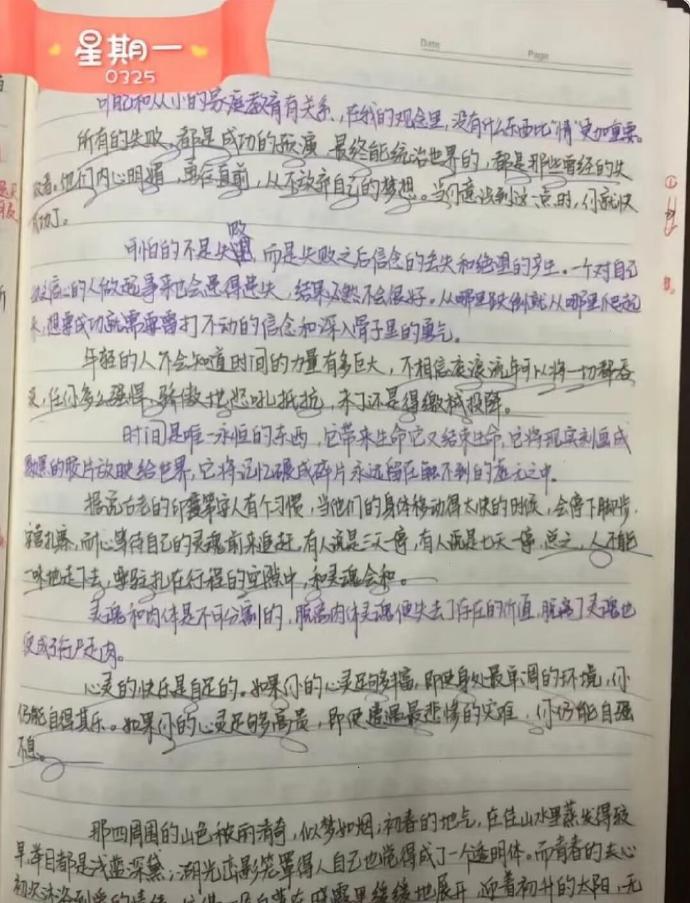 星期一
0325
Date
Page
可能和从小的家庭教育有关系,在我的观念里,没有什么东西比"情"更加重要。
所有的失败,都是成功的预演,最终能统治世界的,都是那些曾经的失
败者。他们内心明媚,勇往直前,从不放弃自己的梦想。当你意识到这一点时,你就快
成功了。
可怕的不是失败,而是失败之后信念的丢失和绝望的产生。一个对自己
没信心的人做起事来也会患得患失,结果必然不会很好。从哪里跌倒就从哪里爬起
来,想要成功就需要雷打不动的信念和深入骨子里的勇气。
年轻的人不会知道时间的力量有多巨大,不相信滚滚流年可以将一切都吞
没,任你多么强悍、骄傲地怒吼抵抗,末了还是得缴械投降。
时间是唯一永恒的东西,它带来生命它又结束生命,它将现实刻画成
黝黑的胶片放映给世界,它将记忆碾成碎片永远留在触不到的虚无之中。
据说古老的印第安人有个习惯,当他们的身体移动得太快的时候,会停下脚步,
安营扎寨,耐心等待自己的灵魂前来追赶,有人说是三天一停,有人说是七天一停,总之,人不能
一味地走下去,要驻扎在行程的空隙中,和灵魂会和。
灵魂和肉体是不可分割的,脱离肉体灵魂便失去了存在的价值,脱离了灵魂也
便成了行尸走肉。
心灵的快乐是自足的。如果你的心灵足够丰富,即使身处最单调的环境,你
仍能自得其乐。如果你的心灵足够高贵,即使遭遇最悲惨的灾难,你仍能自强
不息。
那四周围的山色秾丽清奇,似梦如烟;初春的地气,在佳山水里蒸发得较
早,举目都是浅蓝深黛;湖光峦影笼罩得人自己也觉得成了一个透明体。而青春的去心
初次沐浴到爱的情
缓缓地展开,迎着初升的太阳,无